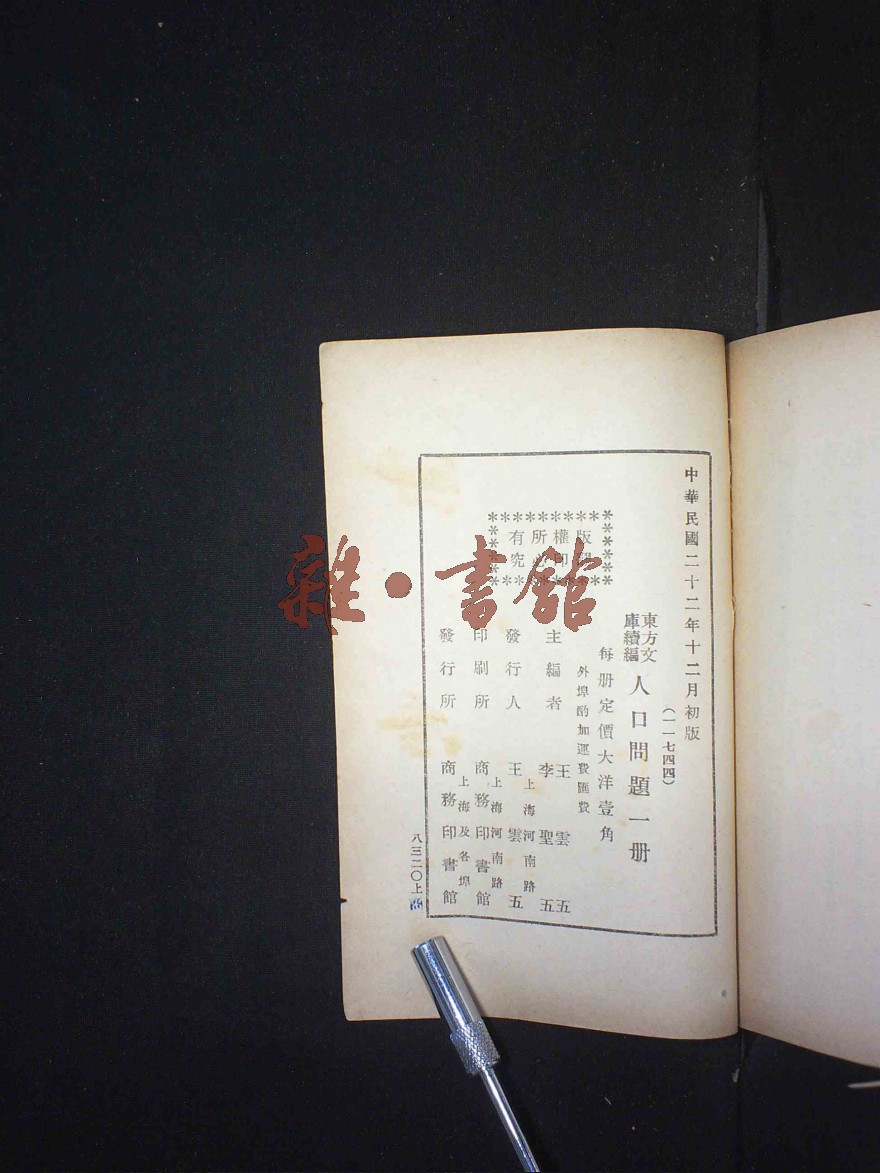 中華民國二十二年十二月初版
(一一七四四)
東方文庫續編 人口問題一册
每册定價大洋壹角
外埠酌加運費匯費
版權所有
印必究
主編者 王雲五 李聖五
發行人 上海河南路 王雲五
印刷所 上海河南路 商務印書館
發行所 上海及各埠 商務印書館
八三二〇上
雜·書館